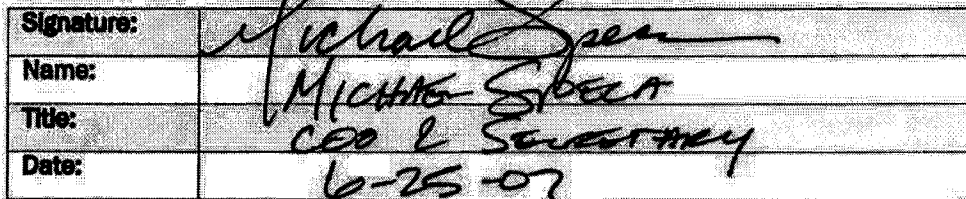 Signature: Michael Spera
Name: MICHAEL SPERA
Title: CEO & SECRETARY
Date: 6-25-07